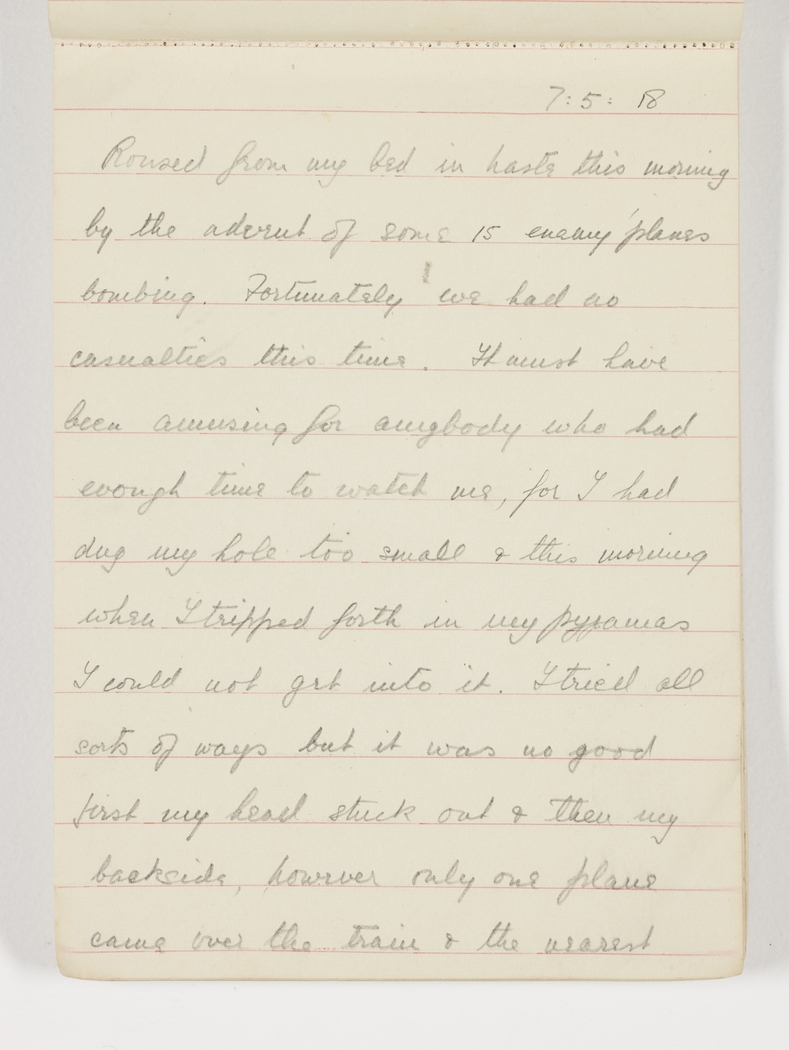 7:5:18
Roused from my bed in haste this morning
by the advent of some 15 enemy 'planes
bombing. Fortunately we had no
casualties this time. It must have
been amusing for anybody who had
enough time to watch me, for I had
dug my hole too small & this morning
when I tripped forth in my pyjamas
I could not get into it. I tried all
sorts of ways but it was no good
first my head stuck out & then my
backside, however only one plane
came over the train & the nearest